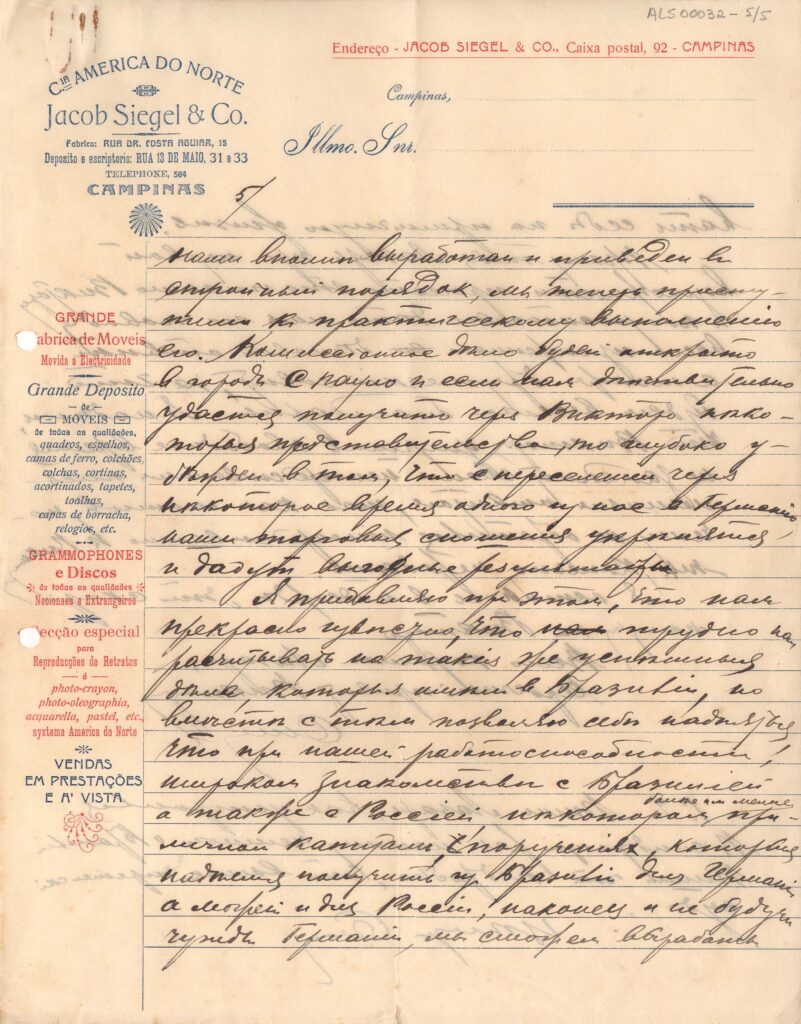 ALS00032 - 5/5
Endereço - JACOB SIEGEL & CO., Caixa postal, 92 - CAMPINAS
Cia AMERICA DO NORTE
Jacob Siegel & Co.
Fabrica: RUA DR. COSTA AGUIAR, 15
Deposito e escriptorio: RUA 13 DE MAIO, 31 e 33
TELEPHONE, 584
CAMPINAS
Campinas,
Illmo. Snr.
5/
GRANDE
Fabrica de Moveis
Movida a Electricidade
Grande Deposito
de
MOVEIS
de todas as qualidades,
quadros, espelhos,
camas de ferro, colchões
colchas, cortinas,
acortinados, tapetes,
toalhas,
capas de borracha,
relogios, etc.
GRAMMOPHONES
e Discos
de todas as qualidades
Nacionaes e Extrangeiros
Secção especial
para
Reproducções de Retratos
á
photo-crayon,
photo-oleographia,
acquarella, pastel, etc.,
systema America do Norte
VENDAS
EM PRESTAÇÕES
E A' VISTA
нами вполнѣ выработан и приведен в
стройный порядок, мы теперь присту-
пили к практическому выполнению
его. Комиссионное дѣло будет открыто
в городѣ С Пауло и если нам дѣйствительно
удастся получить через Виктора нѣко-
торыя представительства, то глубоко у
бѣжден в том, что с переселением через
нѣкоторое время одного из нас в Германию
наши торговыя сношения укрѣпятся
и дадут выгодные результаты
Я прибавляю при этом, что нам
прекрасно извѣстно, что трудно нам
расчитывать на такия же успѣшныя
дѣла, которыя имѣем в Бразилии, но
вмѣстѣ с тѣм позволяю себѣ надѣяться
что при нашей работоспособности,
широком знакомствѣ с Бразилией
а также с Россией нѣкотором болѣе или менѣе при-
личном капиталѣ, порученіях, которыя
надѣемся получить из Бразилии для Германии
а может и для Россіи, наконец и не будучи
чужды Германіи, мы сможем вырабатыв